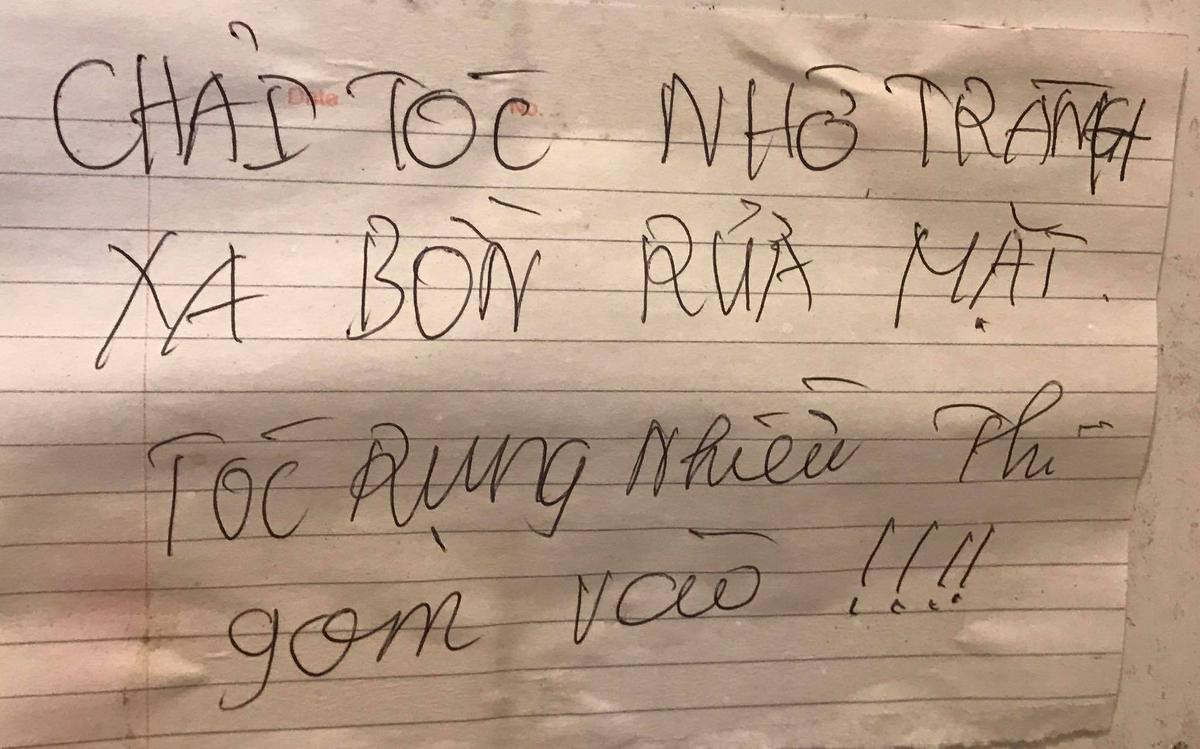 CHẢI TÓC NHỚ TRÁNH
XA BỒN RỬA MẶT.
TÓC RỤNG NHIỀU Thì
gom vào !!!!